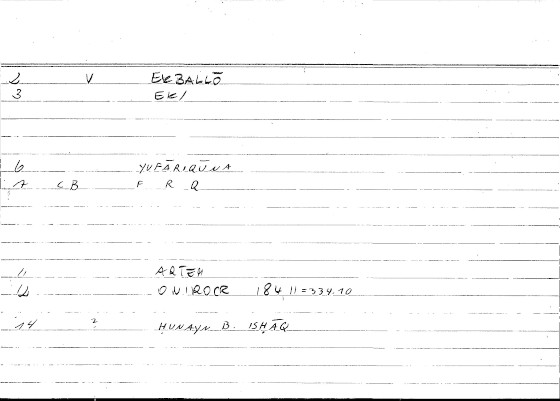 2 V EKBALLŌ
3 EK/
6 YUFĀRIQŪNA
7 CB F R Q
11 ARTEM
12 ONIROCR 184,11=334.10
14 2 ḤUNAYN B. ISḤĀQ